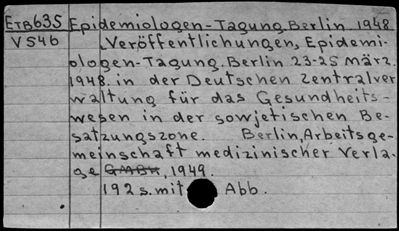 ETB635 Epidemiologen-Tagung Berlin 1948
V546 Veröffentlichungen, Epidemi-
ologen-Tagung. Berlin 23-25 März.
1948. in der Deutschen Zentralver
waltung für das Gesundheits-
wesen in der sowjetischen Be-
satzungszone. Berlin, Arbeitsge-
meinschaft medizinischer Verla-
ge GMBH, 1949.
192 s. mit Abb.